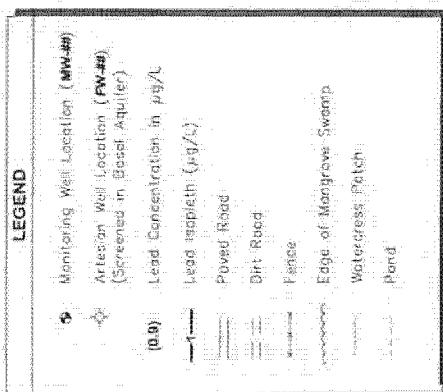 LEGEND
Monitoring Well Location (MW-##)
Artesian Well Location (PW-##)
(Screened in Basal Aquifer)
(0.9) Lead Concentration in µg/L
—1— Lead Isopleth (µg/L)
Paved Road
Dirt Road
Fence
Edge of Mangrove Swamp
Watercress Patch
Pond